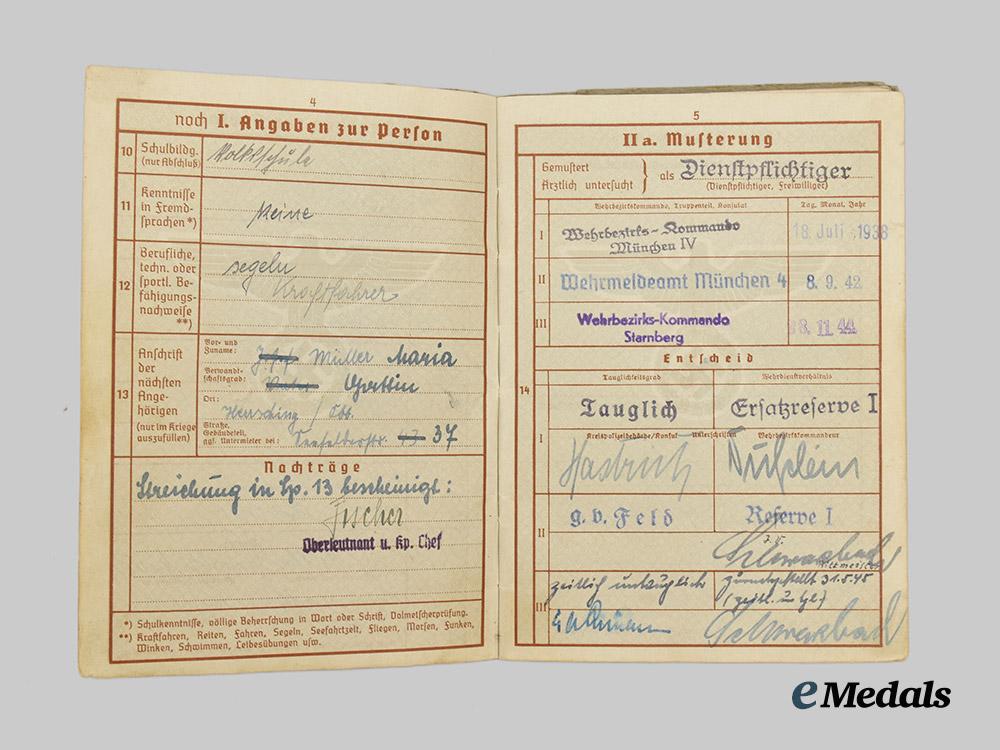 4
noch I. Angaben zur Person
10 Schulbildg. (nur Abschluß) Volksschule
11 Kenntnisse in Fremd-sprachen*) Keine
12 Berufliche, techn. oder sportl. Be-fähigungs-nachweise **) segeln
Kraftfahrer
13 Anschrift der nächsten Ange-hörigen (nur im Kriege auszufüllen)
Vor- und Zuname: Josef Müller Maria
Verwandt-schaftsgrad: Vater Gattin
Ort: Obb.
Straße, Gebäudeteil, ggf. Untermieter bei: 43 37
Nachträge
Streichung in Sp. 13 bescheinigt:
Fischer
Oberleutnant u. Kp. Chef
*) Schulkenntnisse, völlige Beherrschung in Wort oder Schrift, Dolmetscherprüfung.
**) Kraftfahren, Reiten, Fahren, Segeln, Seefahrtzeit, Fliegen, Morsen, Funken,
Winken, Schwimmen, Leibesübungen usw.
5
IIa. Musterung
Gemustert
Ärztlich untersucht } als Dienstpflichtiger
(Dienstpflichtiger, Freiwilliger)
Wehrbezirkskommando, Truppenteil, Konsulat Tag, Monat, Jahr
I Wehrbezirks-Kommando
München IV 18. Juli 1938
II Wehrmeldeamt München 4 8.9.42
III Wehrbezirks-Kommando
Starnberg 8.11.44
Entscheid
14
Tauglichkeitsgrad Wehrdienstverhältnis
I Tauglich Ersatzreserve I
Kreispolizeibehörde/Konsul Unterschriften Wehrbezirkskommandeur
II g.v. Feld Reserve I
III zeitlich untauglich zurückgestellt 31.5.45
(zeitl. utgl.)
eMedals